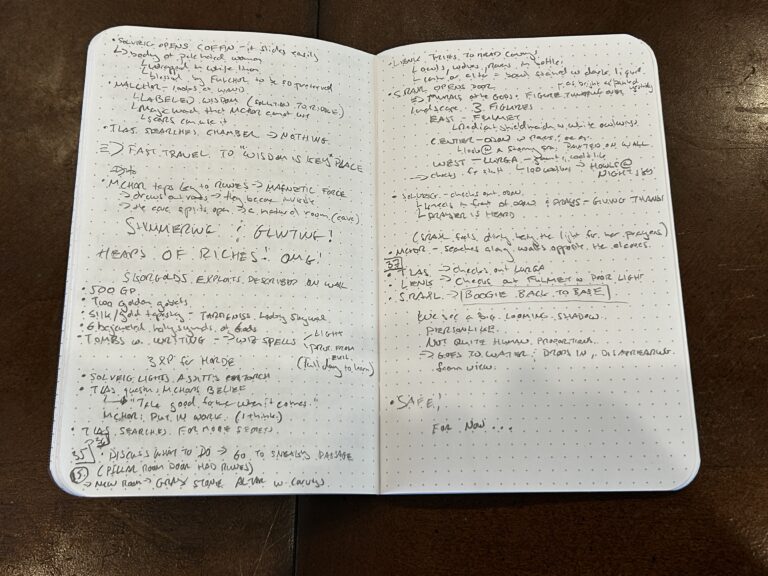 • SOLVEIG OPENS COFFIN - it slides easily
↳ body of pickled woman
↳ wrapped in white linen
↳ blessed by FULCHOR to be so preserved
• MALCHOR - looks at wand
↳ LABELED WISDOM
↳ Magic wand that MCHOR cannot use
↳ can use it
• TLAS SEARCHES CHAMBER → NOTHING
⇒ FAST TRAVEL TO "WISDOM IS KEY" PLACE
• MCHOR taps key to RUNES → MAGNETIC FORCE
→ draws out rods → they become
→ the cave splits open → a natural room (cave)
SHIMMERING & GLINTING!
HEAPS OF RICHES! OMG!
SIGORGOLDS EXPLOITS DESCRIBED ON WALL
• 500 GP
• Two golden goblets
• Silk/gold tapestry -
• 6 bejeweled holy symbols of Gods
• TOMBS W. WRITING → WIZ SPELLS LIGHT
PROT. FROM EVIL
3 XP for HORDE (full day to learn)
• SOLVEIG LIGHTS A TORCH
• TLAS MCHOR'S BELIEF
↳ "Take good fortune when it comes."
MCHOR: PUT IN WORK. (I think.)
• TLAS SEARCHES FOR MORE SECRETS.
35 36
• DISCUSS WHAT TO DO → GO TO SNEAKSY PASSAGE
15 (PILLAR ROOM DOOR HAD RUNES)
→ NEW ROOM → GRAY STONE ALTAR W. CARVINGS
• LIENIS TRIES TO READ CARVINGS
↳ owls, wolves, ravens, in battle
↳ center of altar = bowl stained w dark liquid.
• SRAXL OPENS DOOR
⇒ MURALS OF THE GODS: FIGURE TOWERING OVER
landscape. 3 FIGURES
EAST - FULMET
↳ Radiant shieldmaiden w white owl wings
CENTER - ODON w Ravens
↳ looks @ a stormy sea. PAINTED ON WALL
WEST - LURGA - giant, wolflike
→ checks for shit ↳ 100 wolves → HOWLS @ NIGHT SKY
• SOLVEIG - checks out ODON
↳ kneels in front of ODON & PRAYS - GIVING THANKS
↳ PRAYER IS HEARD
(SRAXL holds the light for her prayers)
• MCHOR - searches along walls opposite the
37
• TLAS → checks out LURGA
• LIENIS → checks out FULMET w DOOR LIGHT
• SRAXL → BOOGIE BACK TO BASE
We see a big looming shadow.
PERSONLIKE.
NOT QUITE HUMAN PROPORTIONS.
→ GOES TO WATER & DROPS IN, DISAPPEARING
from view.
• SAFE!
FOR NOW...